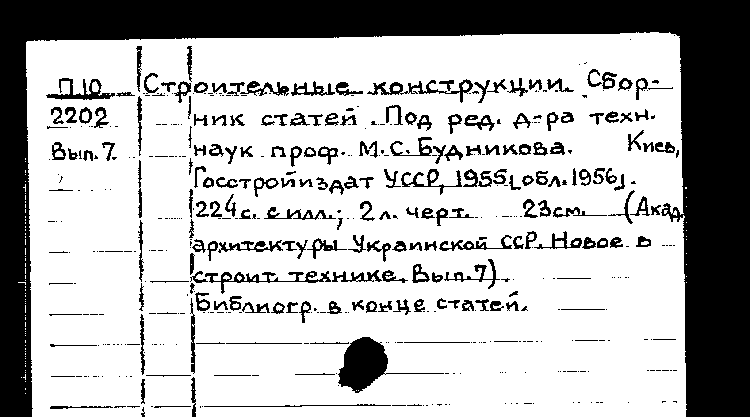 П 10 Строительные конструкции. Сбор-
2202 ник статей. Под ред. д-ра техн.
Вып. 7. наук проф. М.С. Будникова. Киев,
Госстройиздат УССР, 1955[обл. 1956].
224 с. с илл.; 2 л. черт. 23 см. (Акад.
архитектуры Украинской ССР. Новое в
строит. технике. Вып. 7).
Библиогр. в конце статей.